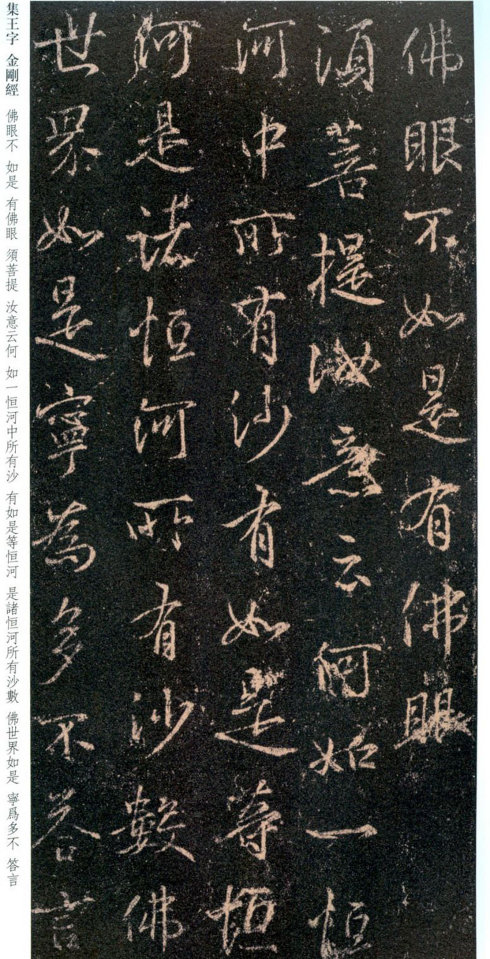 佛眼不如是有佛眼
須菩提汝意云何如一恒
河中所有沙有如是等恒
河是諸恒河所有沙數佛
世界如是寧為多不答言
集王字 金剛經 佛眼不 如是 有佛眼 須菩提 汝意云何 如一恒河中所有沙 有如是等恒河 是諸恒河所有沙數 佛世界如是 寧爲多不 答言